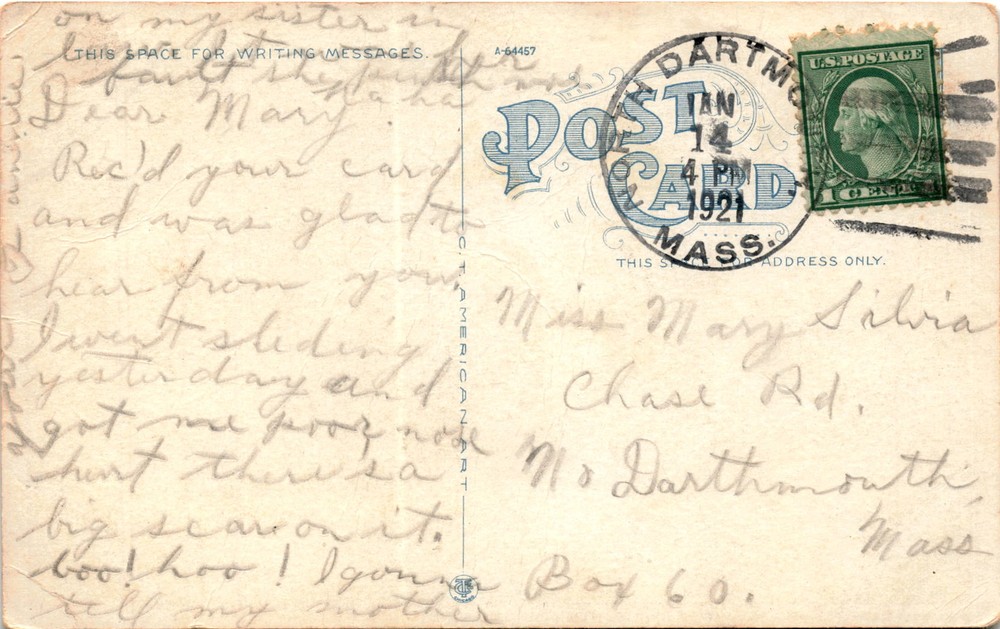 on my sister in
THIS SPACE FOR WRITING MESSAGES.
fault she
Dear Mary,
Rec'd your card
and was glad to
hear from you.
I went sleding
yesterday and
got me poor nose
hurt there's a
big scar on it.
boo! hoo! I gonna
tell my mother
A-64457
C.T. AMERICAN ART
POST CARD
NORTH DARTMO
JAN
14
4 PM
1921
MASS.
U.S. POSTAGE
1 CENT 1
THIS SPACE FOR ADDRESS ONLY.
Miss Mary Silvia
Chase Rd.
No Darthmouth,
Mass
Box 60.